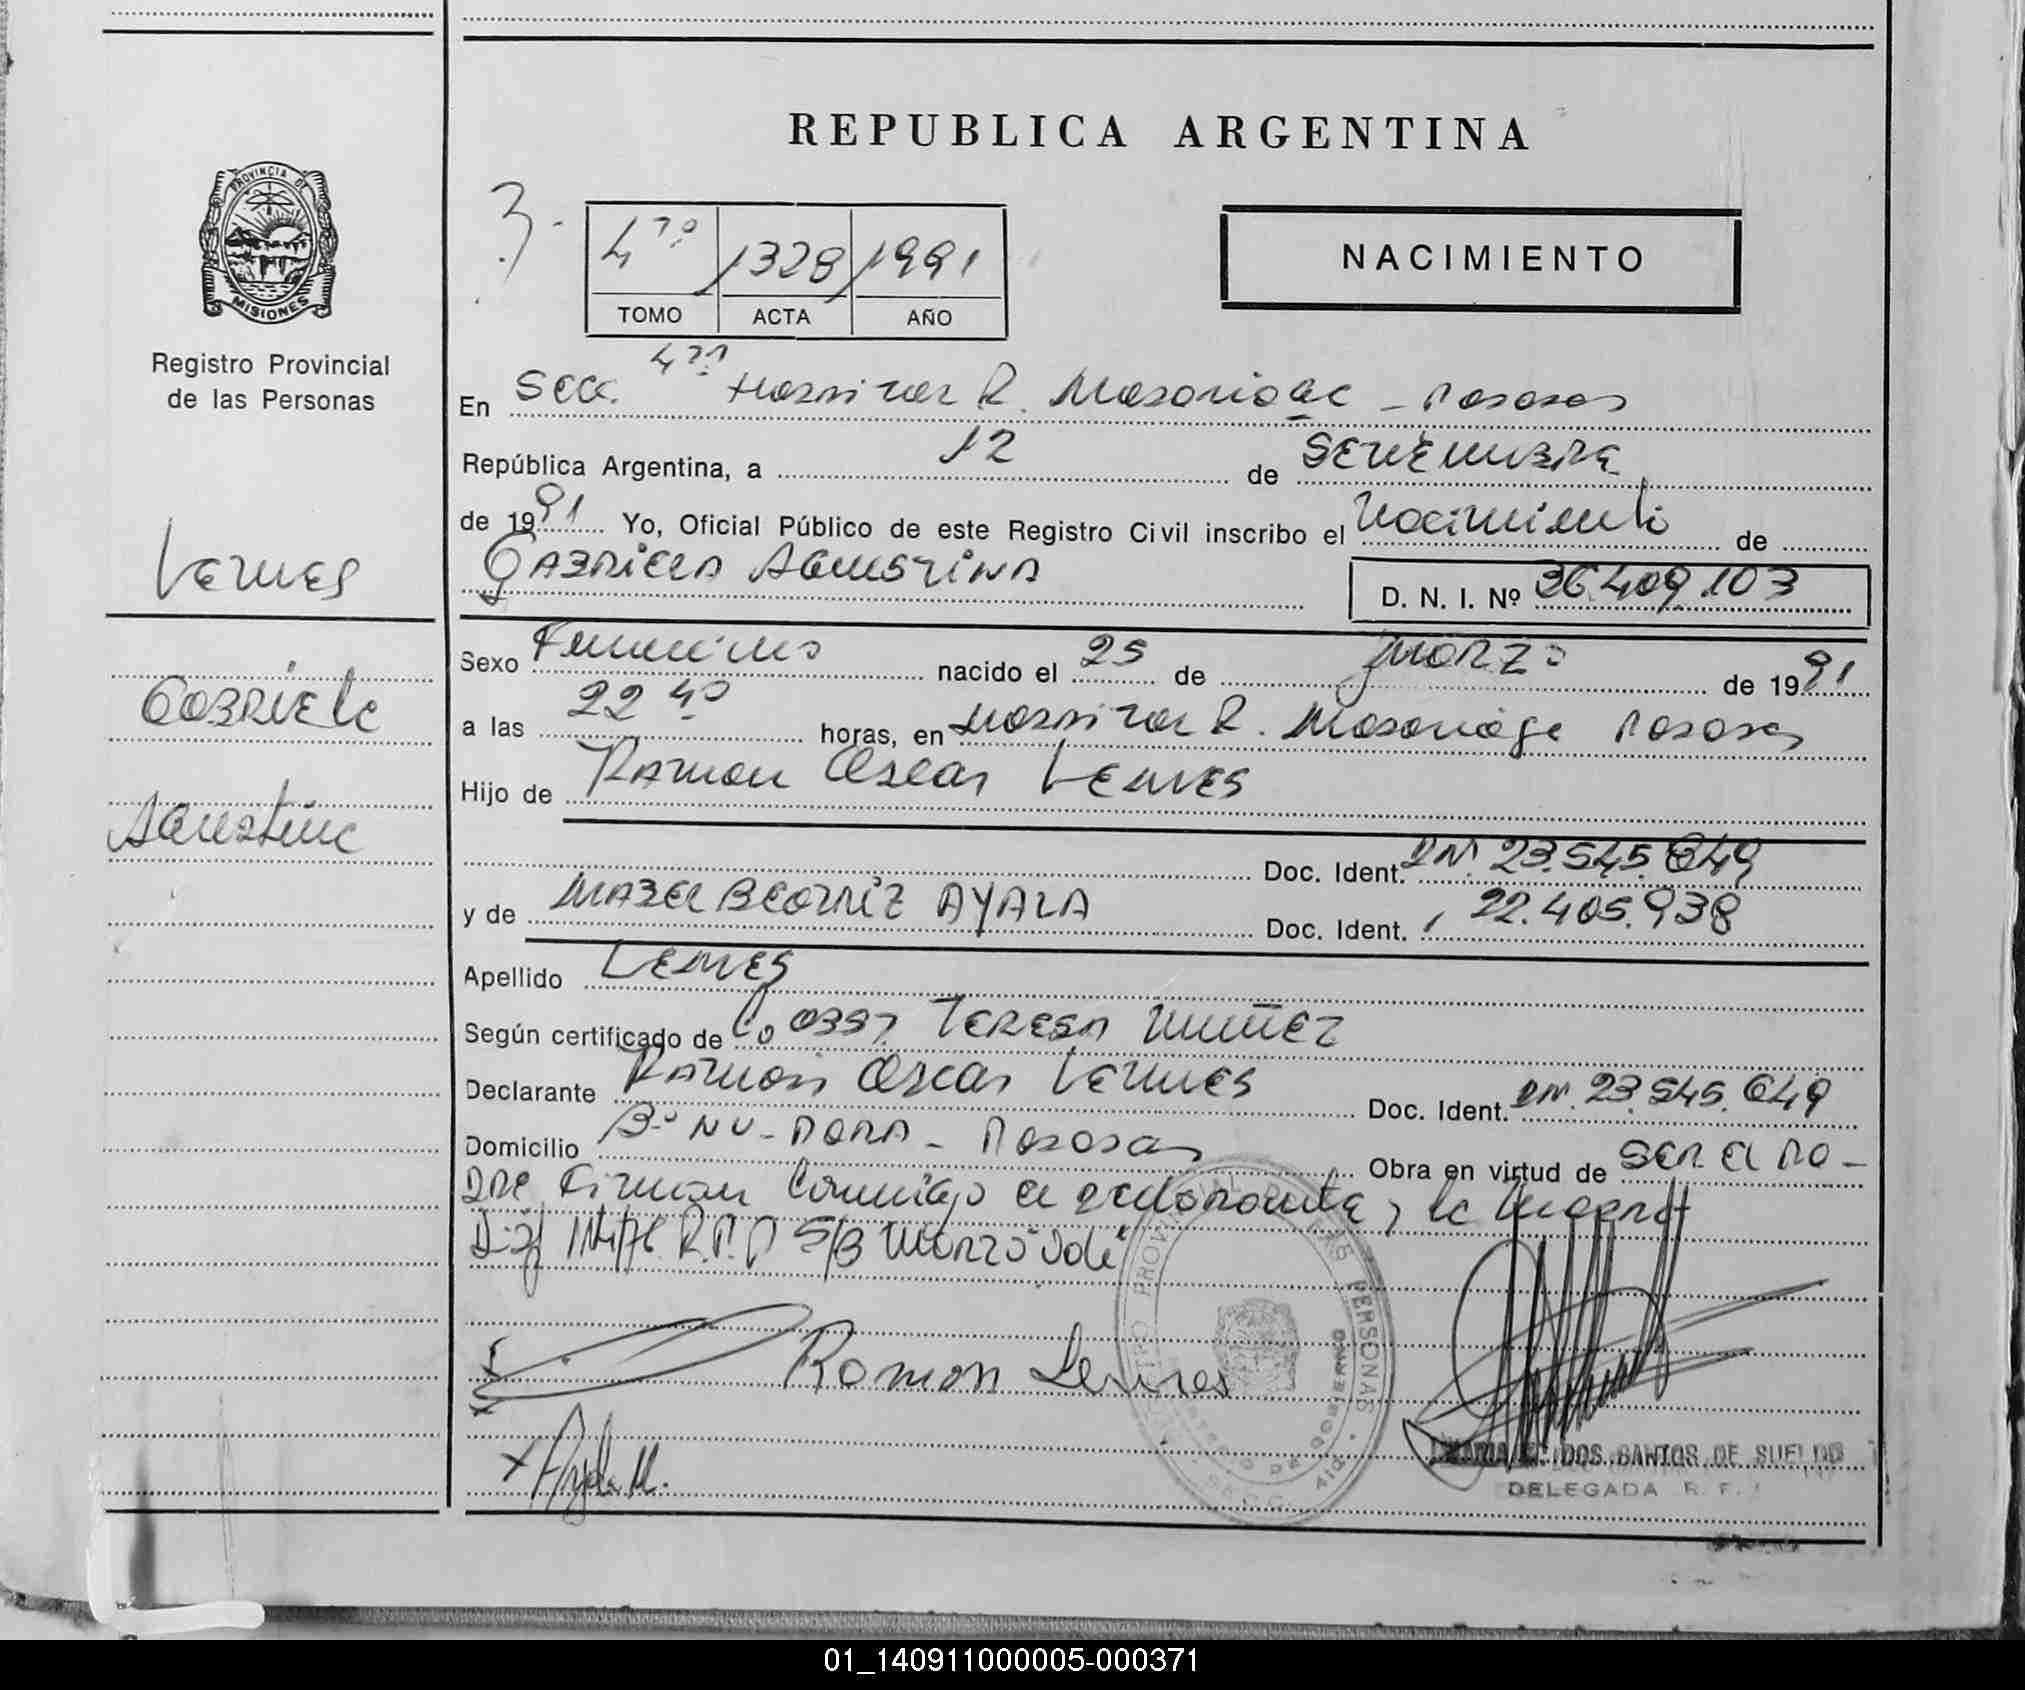 REPUBLICA ARGENTINA
PROVINCIA DE
MISIONES
Registro Provincial
de las Personas
4to 1328 1991
TOMO ACTA AÑO
NACIMIENTO
En Secc. 4ta Hospital R. Madariaga - Posadas
República Argentina, a 12 de Setiembre
de 1991 Yo, Oficial Público de este Registro Civil inscribo el Nacimiento de
Gabriela Agustina D. N. I. Nº 36.409.103
Lemes
Gabriela
Agustina
Sexo Femenino nacido el 25 de Marzo de 1991
a las 22 40 horas, en Hospital R. Madariaga Posadas
Hijo de Ramon Oscar Lemes
Doc. Ident. DNI. 23.545.649
y de Mabel Beatriz AYALA Doc. Ident. 22.405.938
Apellido Lemes
Según certificado de La Obst. Teresa Nuñez
Declarante Ramon Oscar Lemes Doc. Ident. DNI. 23.545.649
Domicilio Bº NU - PORA - Posadas Obra en virtud de ser el pa-
dre Firman Conmigo el declarante y la madre
R.P.P S/B Marzo Vale
Ramon Lemes
Ayala M.
REGISTRO PROVINCIAL DE LAS PERSONAS
MINISTERIO DE GOBIERNO
MARIA E. DOS SANTOS DE SUELDO
DELEGADA R. P.
01_140911000005-000371